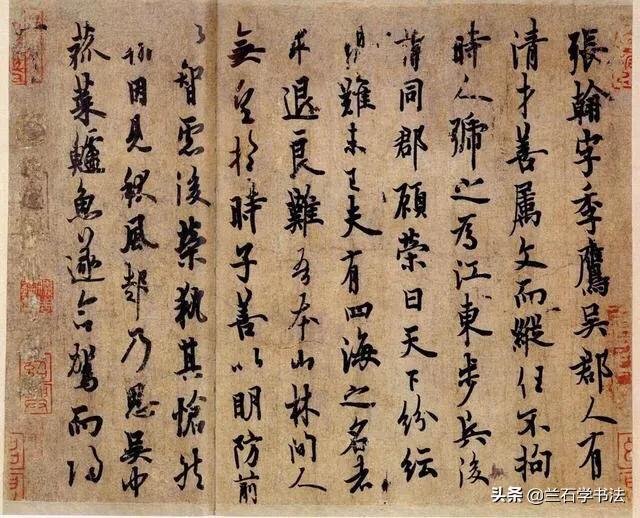 張翰字季鷹吳郡人有
清才善属文而縱任不拘
時人號之為江東步兵後
謂同郡顧榮曰天下紛紜
禍難未已夫有四海之名者
求退良難吾本山林間人
無望於時子善以明防前
以智慮後榮執其愴然
翰因見秋風起乃思吳中
菰菜鱸魚遂命駕而歸
头条 @兰石学书法